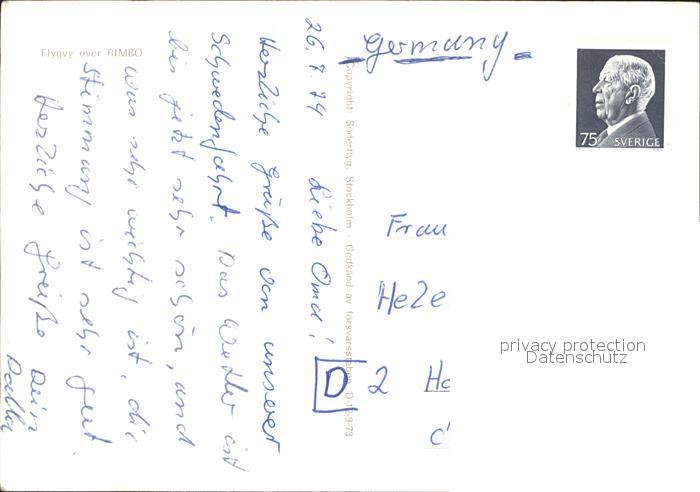 Flygvy över RIMBO
26.7.74
Liebe Oma!
Herzliche Grüße von unserer
Schwedenfahrt. Das Wetter ist
bis jetzt sehr schön, und
was sehr wichtig ist, die
Stimmung ist sehr gut.
Herzliche Grüße Dein
Copyright: Söderflyg, Stockholm - Godkänd av försvarsstaben
Germany
75 SVERIGE
Frau
Hele
D 2 Ha
privacy protection
Datenschutz